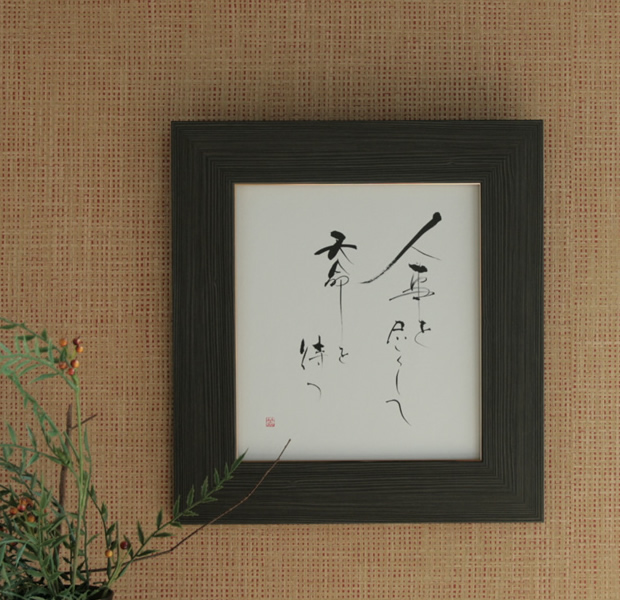 人事を尽くして
天命を
待つ